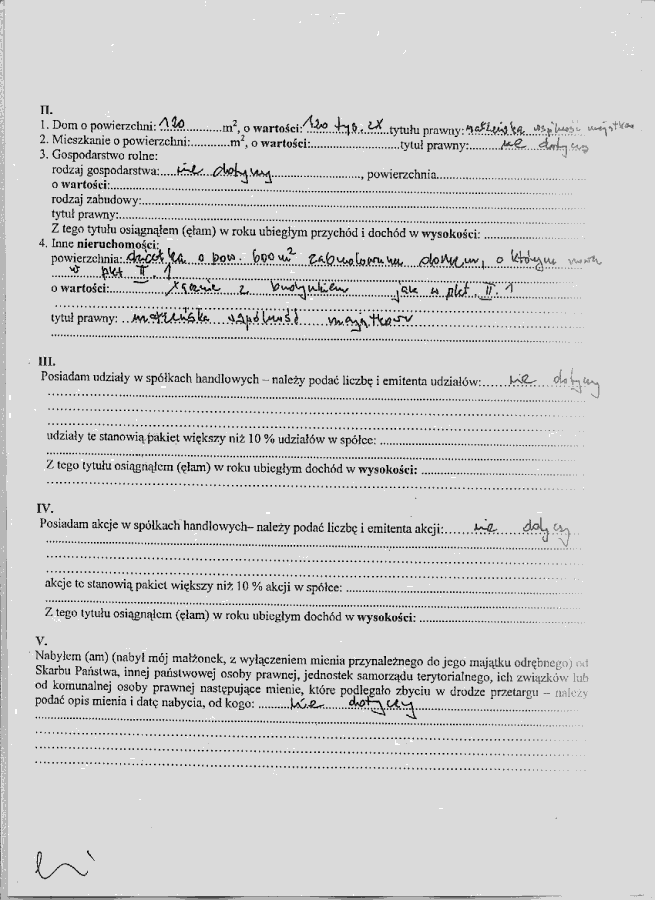 II.
1. Dom o powierzchni: 120 m², o wartości: 120 tys. zł tytułu prawny: małżeńska wspólność majątkow
2. Mieszkanie o powierzchni:..........m², o wartości:..........tytuł prawny:..... nie dotyczy
3. Gospodarstwo rolne:
rodzaj gospodarstwa:.... nie dotyczy ...................., powierzchnia....................
o wartości:....................
rodzaj zabudowy:....................
tytuł prawny:....................
Z tego tytułu osiągnąłem (ęłam) w roku ubiegłym przychód i dochód w wysokości: ....................
4. Inne nieruchomości:
powierzchnia: działka o pow. 600 m² zabudowana domem, o którym mowa
w pkt II. 1
o wartości:.......... łącznie z budynkiem jak w pkt. II. 1
tytuł prawny: .. małżeńska wspólność majątkow
III.
Posiadam udziały w spółkach handlowych – należy podać liczbę i emitenta udziałów:...... nie dotyczy
udziały te stanowią pakiet większy niż 10 % udziałów w spółce: ....................
Z tego tytułu osiągnąłem (ęłam) w roku ubiegłym dochód w wysokości: ....................
IV.
Posiadam akcje w spółkach handlowych– należy podać liczbę i emitenta akcji:...... nie dotyczy
akcje te stanowią pakiet większy niż 10 % akcji w spółce: ....................
Z tego tytułu osiągnąłem (ęłam) w roku ubiegłym dochód w wysokości: ....................
V.
Nabyłem (am) (nabył mój małżonek, z wyłączeniem mienia przynależnego do jego majątku odrębnego) od
Skarbu Państwa, innej państwowej osoby prawnej, jednostek samorządu terytorialnego, ich związków lub
od komunalnej osoby prawnej następujące mienie, które podlegało zbyciu w drodze przetargu – należy
podać opis mienia i datę nabycia, od kogo: ........ nie dotyczy